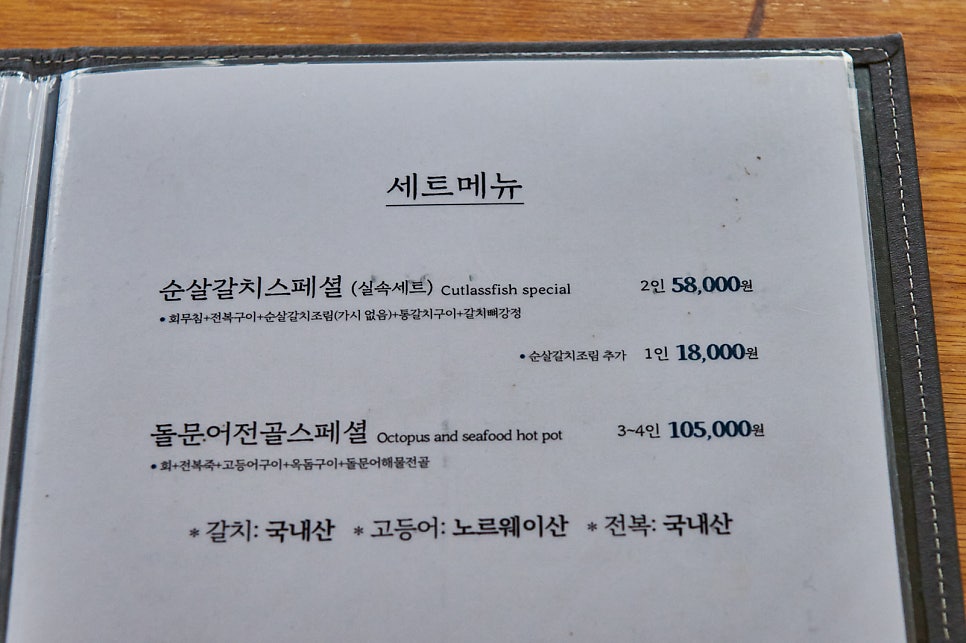 세트메뉴
순살갈치스페셜 (실속세트) Cutlassfish special 2인 58,000원
• 회무침+전복구이+순살갈치조림(가시 없음)+통갈치구이+갈치뼈강정
• 순살갈치조림 추가 1인 18,000원
돌문어전골스페셜 Octopus and seafood hot pot 3~4인 105,000원
• 회+전복죽+고등어구이+옥돔구이+돌문어해물전골
* 갈치: 국내산 * 고등어: 노르웨이산 * 전복: 국내산